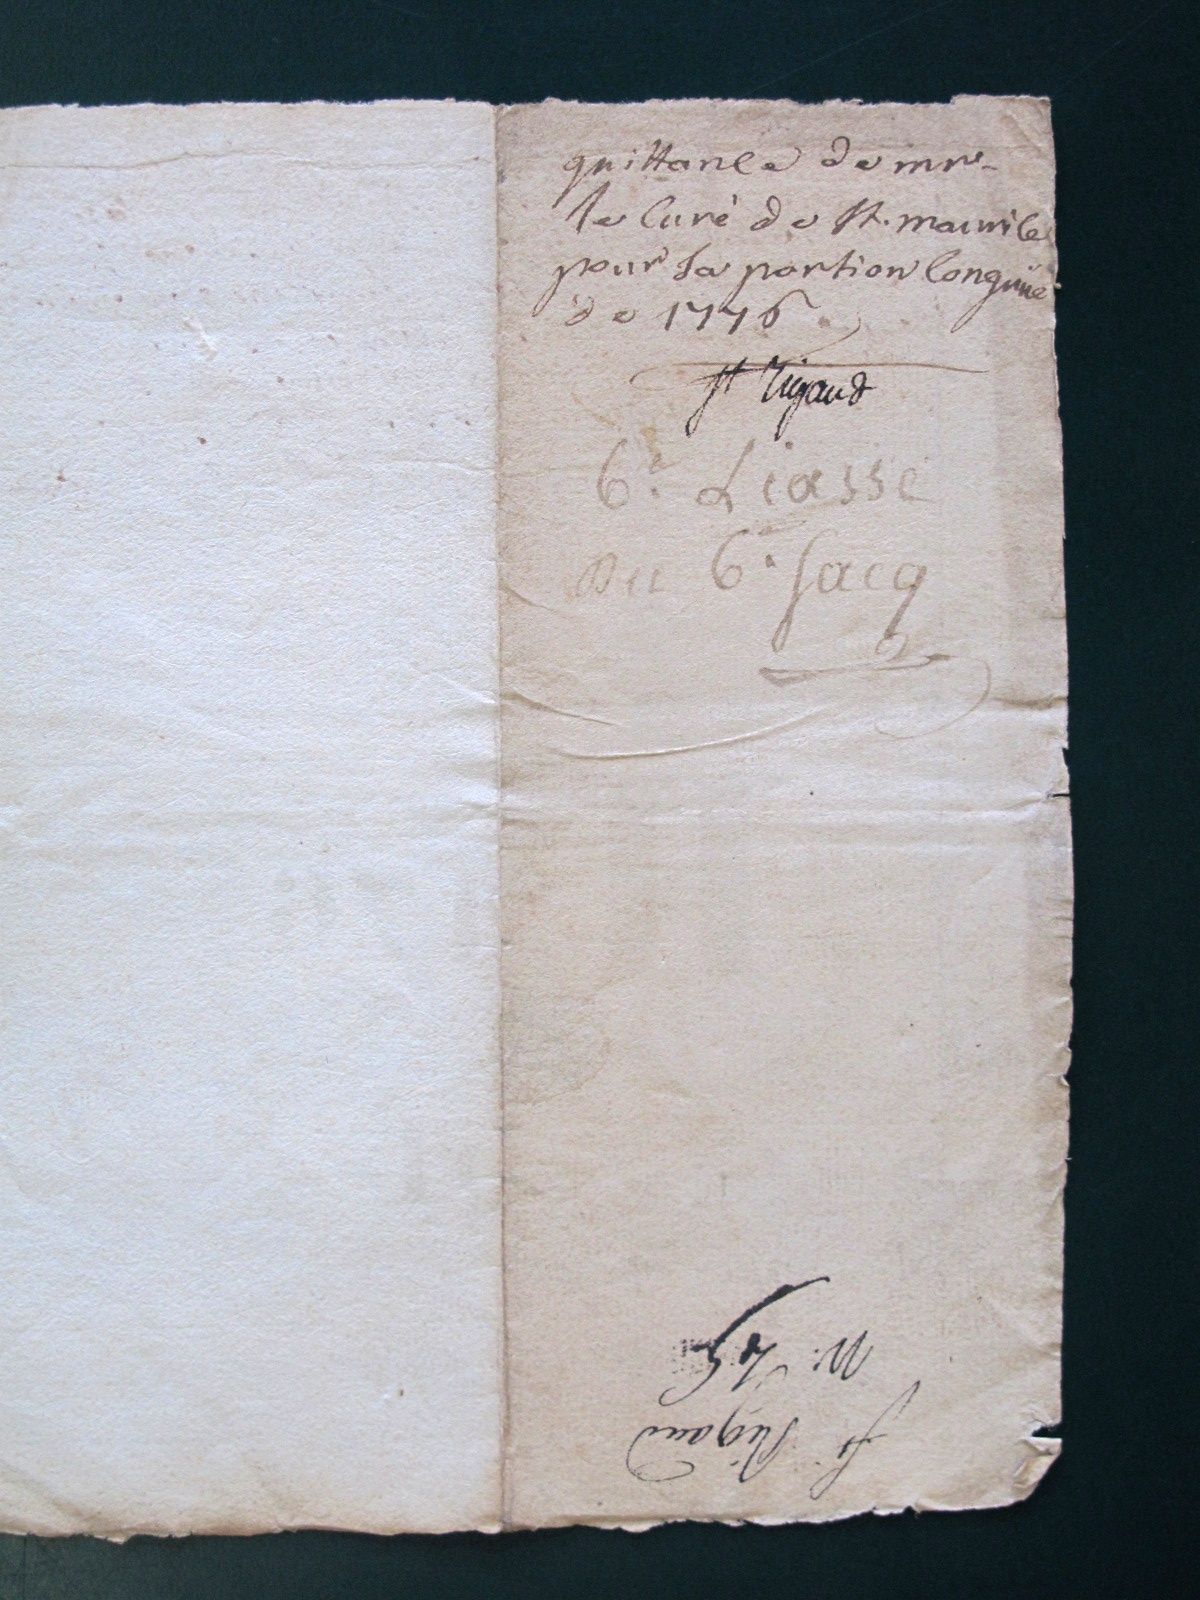 quittance de mr
le curé de st. maurice
pour sa portion congrüe
de 1776
st Rigaud
6e Liasse
du 6e sacq
st Rigaud